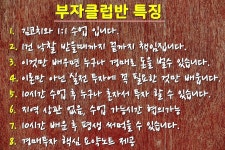 부자클럽반 특징
1. 김코치와 1:1 수업 입니다.
2. 1건 낙찰 받을때까지 끝까지 책임집니다.
3. 이것만 배우면 누구나 경매로 돈을 벌수 있습니다.
4. 이론만 아닌 실전 투자에 꼭 필요한 것만 배웁니다.
5. 10시간 수업 후 누구나 혼자서 투자 할 수 있습니다.
6. 지역 상관 없음, 수업 가능시간 협의가능
7. 10시간 배운 후 평생 써먹을 수 있습니다.
8. 경매투자 핵심 요약노트 제공